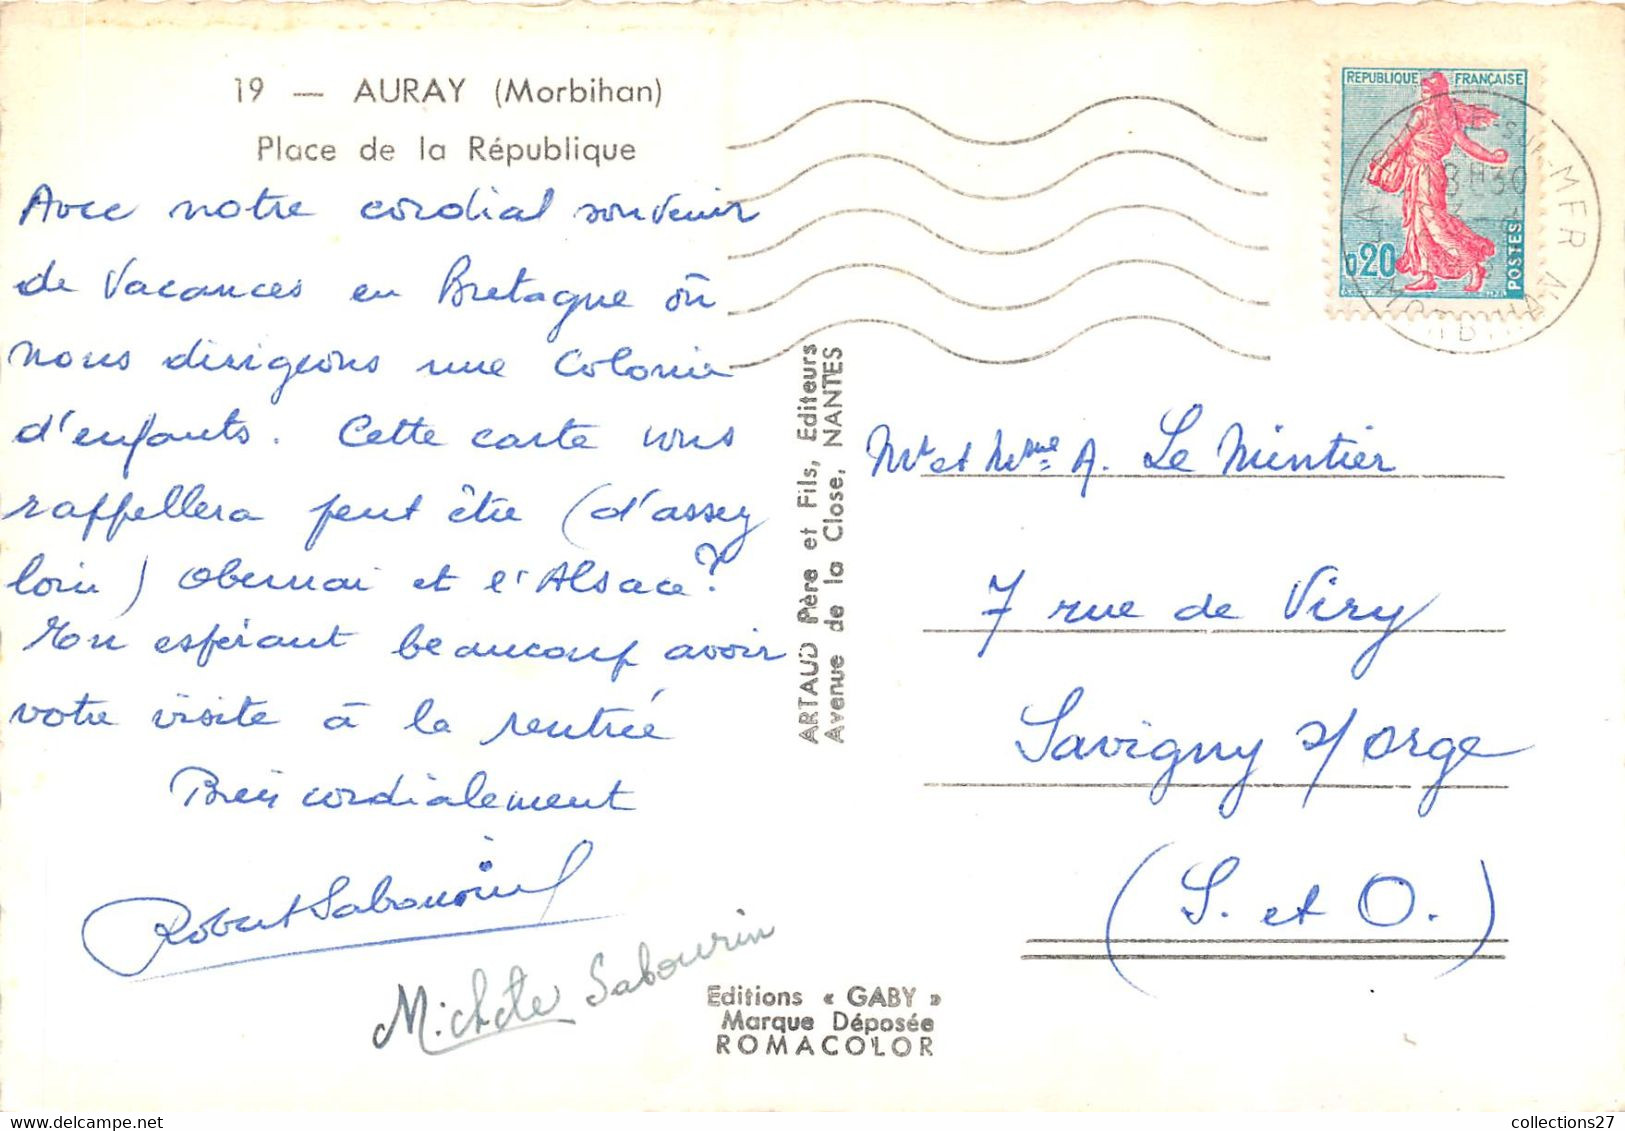 19 — AURAY (Morbihan)
Place de la République
Avec notre cordial souvenir
de Vacances en Bretagne où
nous dirigeons une Colonie
d'enfants. Cette carte vous
rappellera peut être (d'assez
loin) Obernai et l'Alsace?
En espérant beaucoup avoir
votre visite à la rentrée
Bien cordialement
Robert Sabourin
Michele Sabourin
ARTAUD Père et Fils, Editeurs
Avenue de la Close, NANTES
Editions « GABY »
Marque Déposée
ROMACOLOR
REPUBLIQUE FRANÇAISE
0,20
POSTES
LA TRINITE-SUR-MER
8H30
MORBIHAN
Mr et Mme A. Le Mintier
7 rue de Viry
Savigny s/ Orge
(S. et O.)
collections27